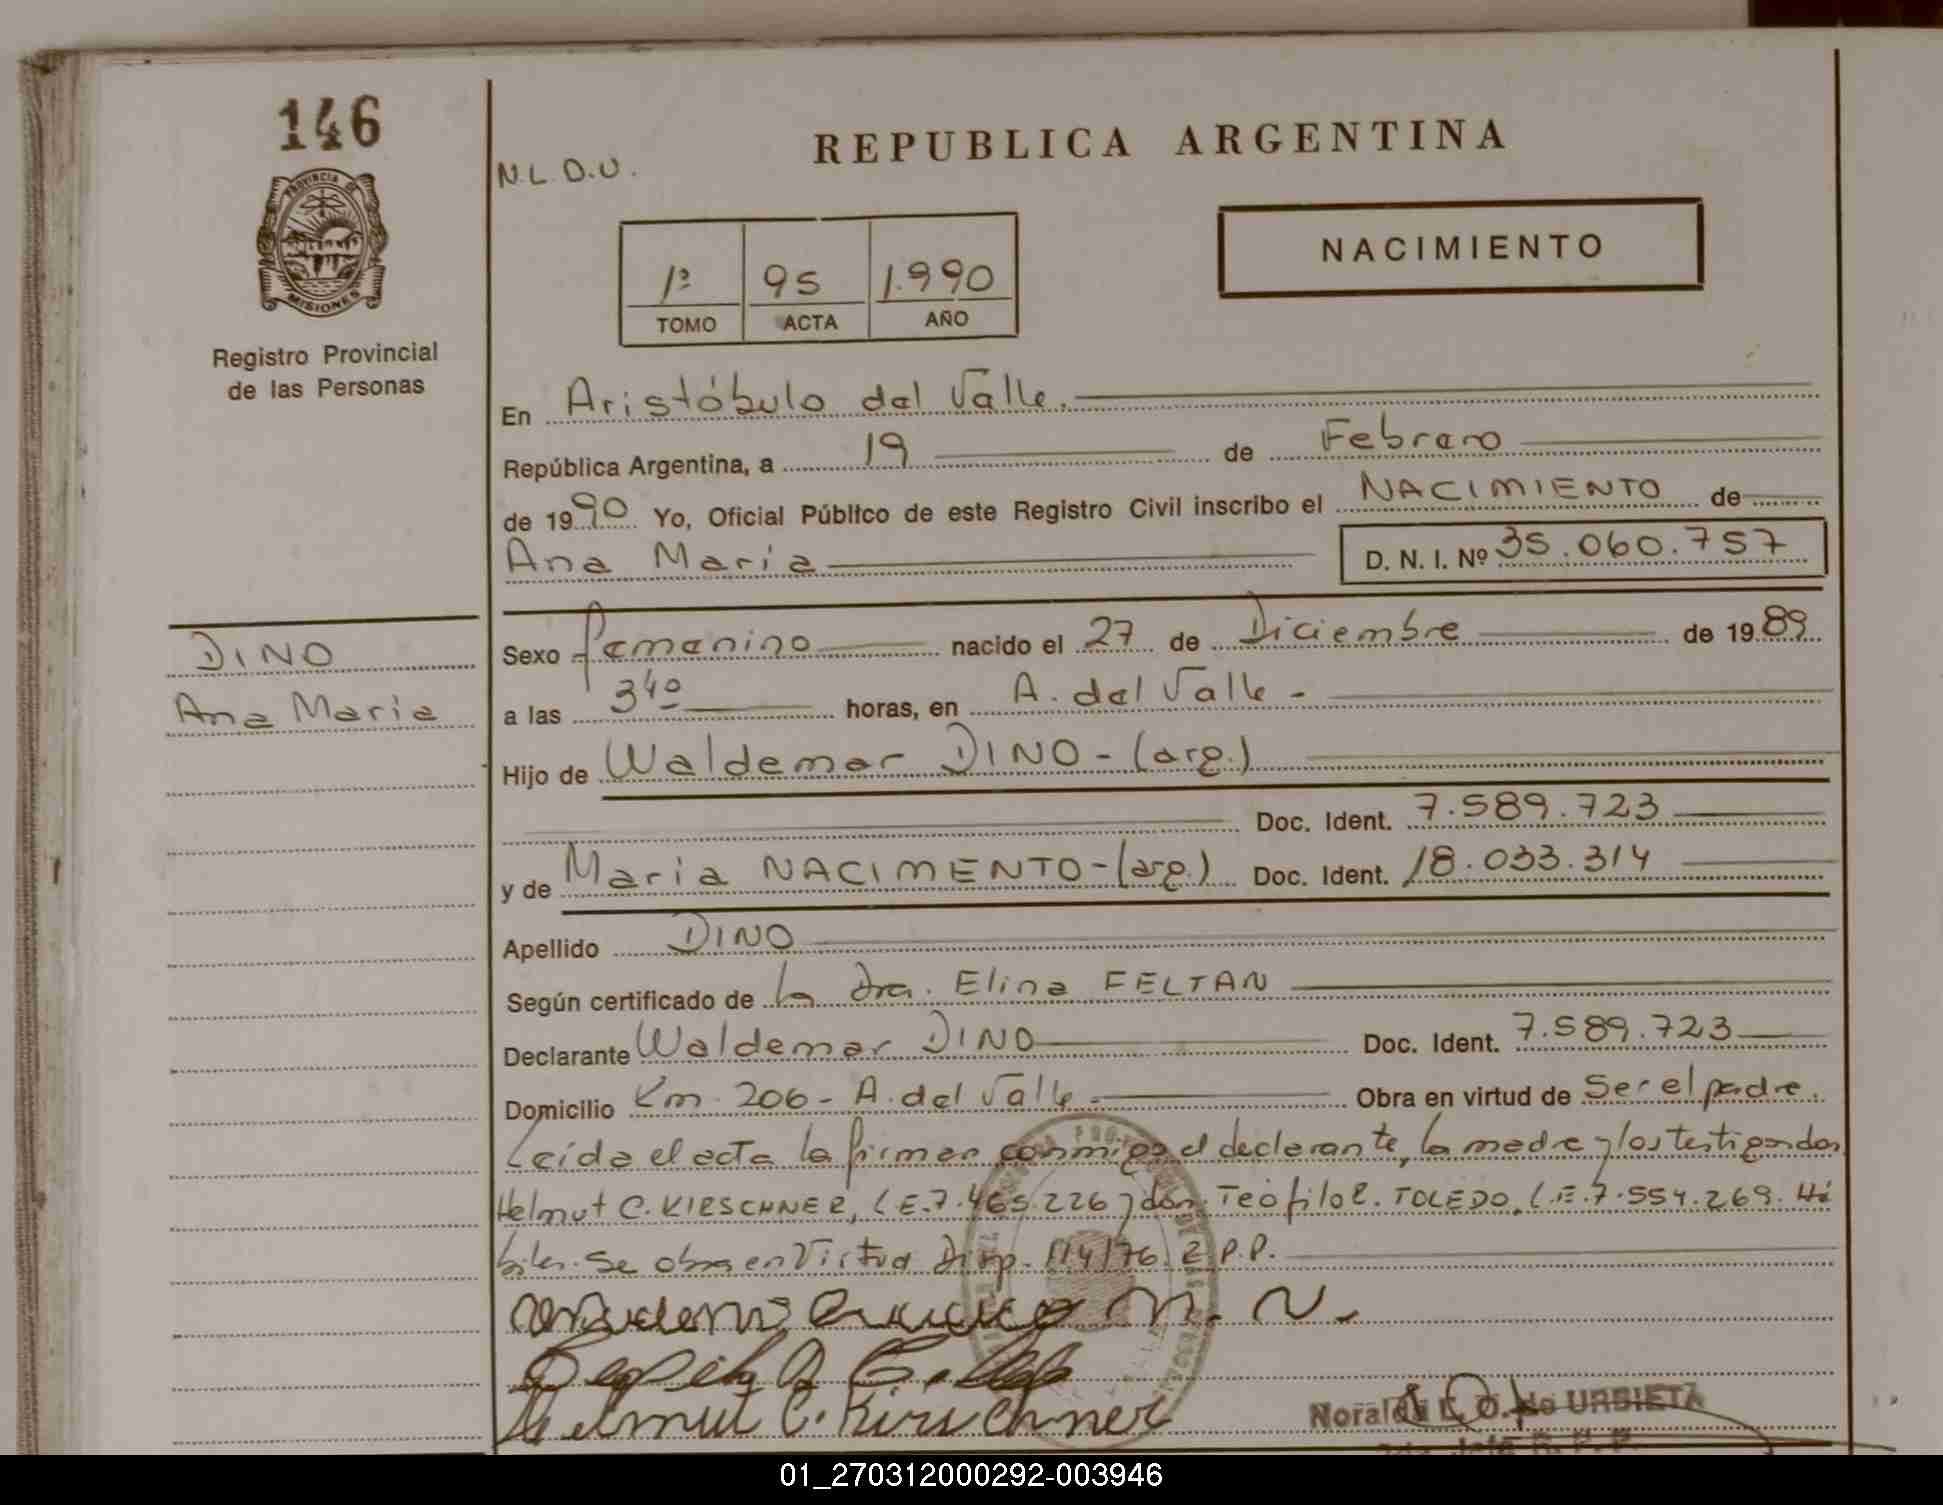 146
REPUBLICA ARGENTINA
N.L.D.U.
PROVINCIA DE
MISIONES
Registro Provincial
de las Personas
NACIMIENTO
1º 95 1.990
TOMO ACTA AÑO
En Aristóbulo del Valle.
República Argentina, a 19 de Febrero
de 1990 Yo, Oficial Público de este Registro Civil inscribo el NACIMIENTO de
Ana Maria D. N. I. Nº 35.060.757
DINO
Ana Maria
Sexo femenino nacido el 27 de Diciembre de 1989
a las 340 horas, en A. del Valle -
Hijo de Waldemar DINO - (arg.)
Doc. Ident. 7.589.723
y de Maria NACIMENTO - (arg.) Doc. Ident. 18.033.314
Apellido DINO
Según certificado de la Dra. Elina FELTAN
Declarante Waldemar DINO Doc. Ident. 7.589.723
Domicilio Km. 206 - A. del Valle - Obra en virtud de Ser el padre.
Leida el acta la firman conmigo el declarante, la madre y los testigos don
Helmut C. KIRSCHNER, L.E. 7.465.226 y don Teófilo R. TOLEDO, L.E. 7.554.269. Há
biles. Se obra en Virtud Disp. 114/76. R.P.P.
M. N.
Helmut C. Kirschner
Noralda L. O. de URBIETA
Jefe R. P. P.
01_270312000292-003946